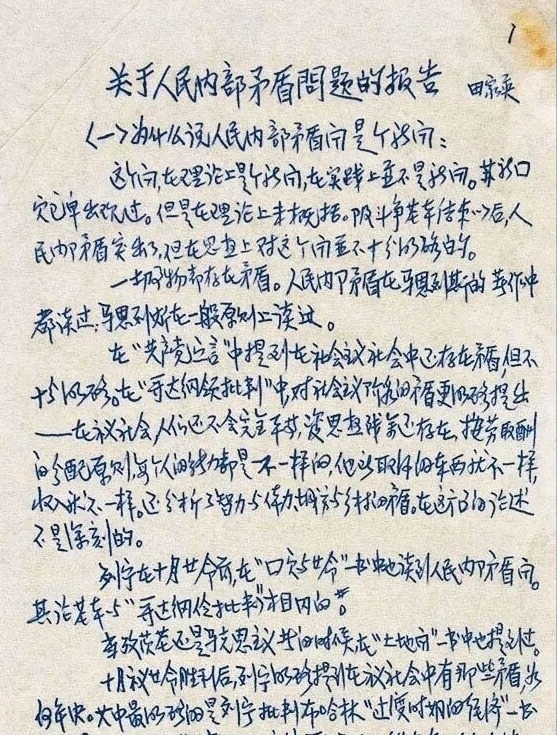 1
关于人民内部矛盾問題的报告 田家英
〈一〉为什么说人民内部矛盾问是个新问：
这个问,在理论上是个新问,在实践上并不是新问。其
出现过。但是在理论上未概括。阶斗争基本结束以后,人
民内部矛盾突出了,但在思想上对这个问并不十分明确的。
一切事物都存在矛盾。人民内部矛盾在马恩列斯的著作中
都谈过,马恩列斯在一般原则上谈过。
在“共产党宣言”中提到在社会主义社会中还存在矛盾,但不
十分明确。在“哥达纲领批判”中,对社会主义的矛盾更明确提出
——在社会,人们还不会完全平等,资思想残余还存在,按劳取酬
的分配原则,每个人的能力都是不一样的,他所取得的东西就不一样,
收入就不一样。还分析了智力与体力,城市与乡村的矛盾。在这方面的论述
不是深刻的。
列宁在十月革命前,在“国家与革命”一书中也谈到人民内部矛盾问。
其论基本与“哥达纲领批判”相同的。
普列汉诺夫还是马克思主义者的时候,在“土地问”一书中也提过。
十月革命胜利后,列宁明确提到在社会中有那些矛盾,如
何解决。其中最明确的是列宁批判布哈林“过渡时期的经济”一书